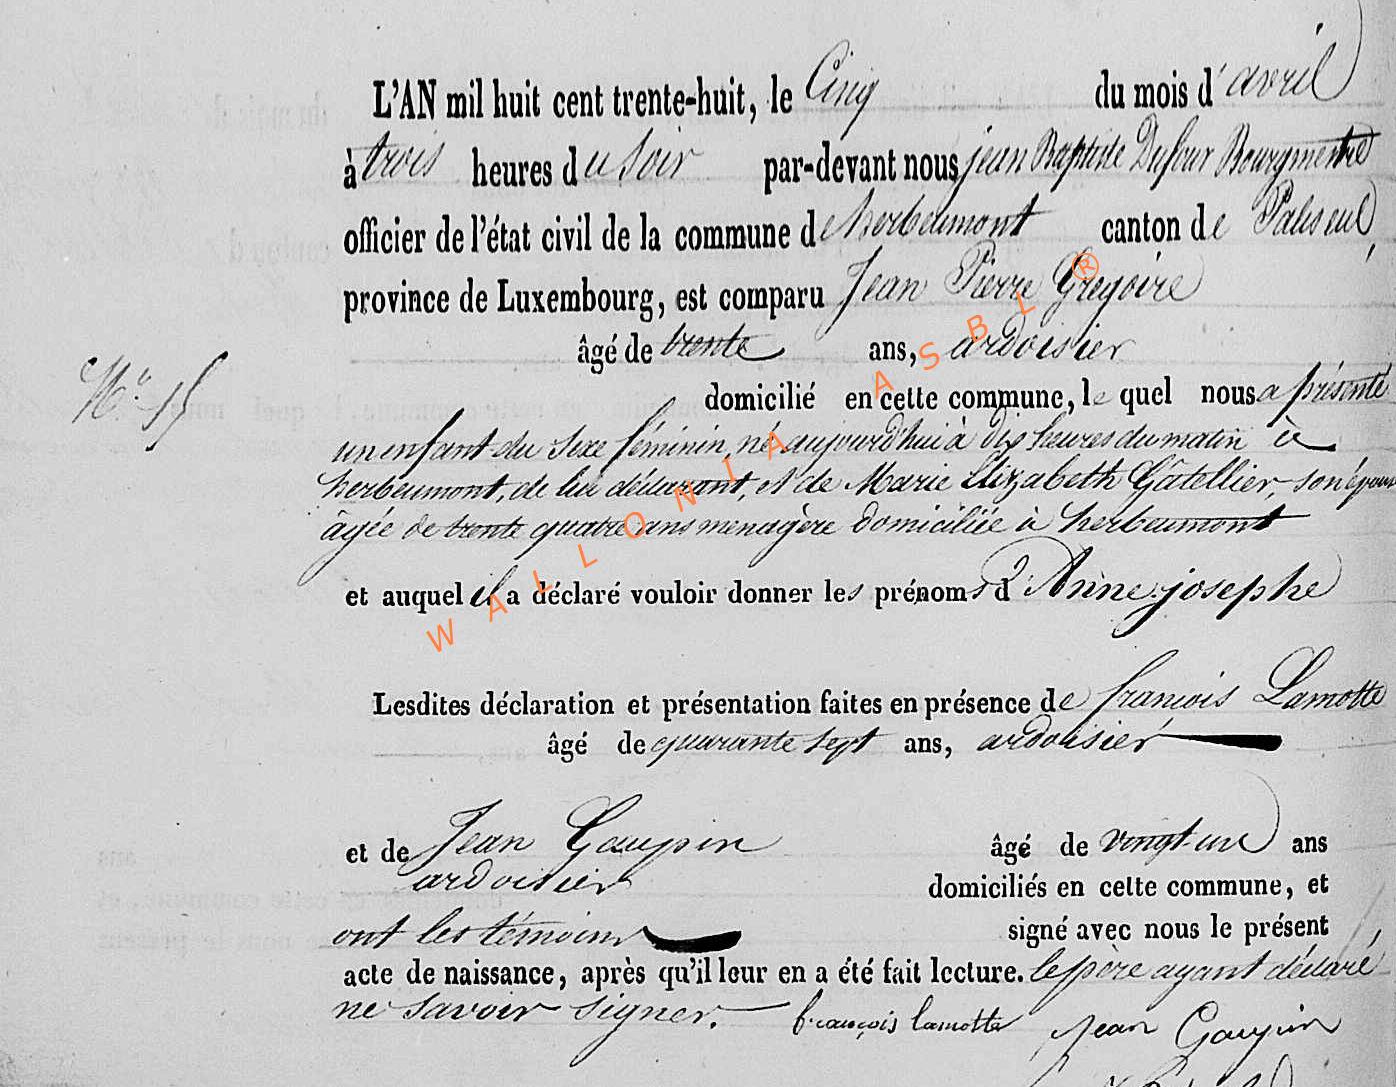 L'AN mil huit cent trente-huit, le Cinq du mois d'avril
à trois heures du soir par-devant nous jean Baptiste Dufour Bourgmestre
officier de l'état civil de la commune de herbeumont canton de Paliseul,
province de Luxembourg, est comparu Jean Pierre Gregoire
âgé de trente ans, ardoisier
N° 15
domicilié en cette commune, le quel nous a présenté
un enfant du sexe féminin, né aujourd'hui à dix heures du matin à
herbeumont, de lui déclarant, et de Marie Elizabeth Gâtellier, son épouse
âgée de trente quatre ans menagère domiciliée à herbeumont
et auquel il a déclaré vouloir donner les prénoms d'Anne josephe
Lesdites déclaration et présentation faites en présence de francois Lamotte
âgé de quarante sept ans, ardoisier
et de Jean Goupin âgé de vingt-un ans
ardoisier domiciliés en cette commune, et
ont les témoins signé avec nous le présent
acte de naissance, après qu'il leur en a été fait lecture. le père ayant déclaré
ne savoir signer.
françois lamotte Jean Goupin
WALLONIA ASBL ®